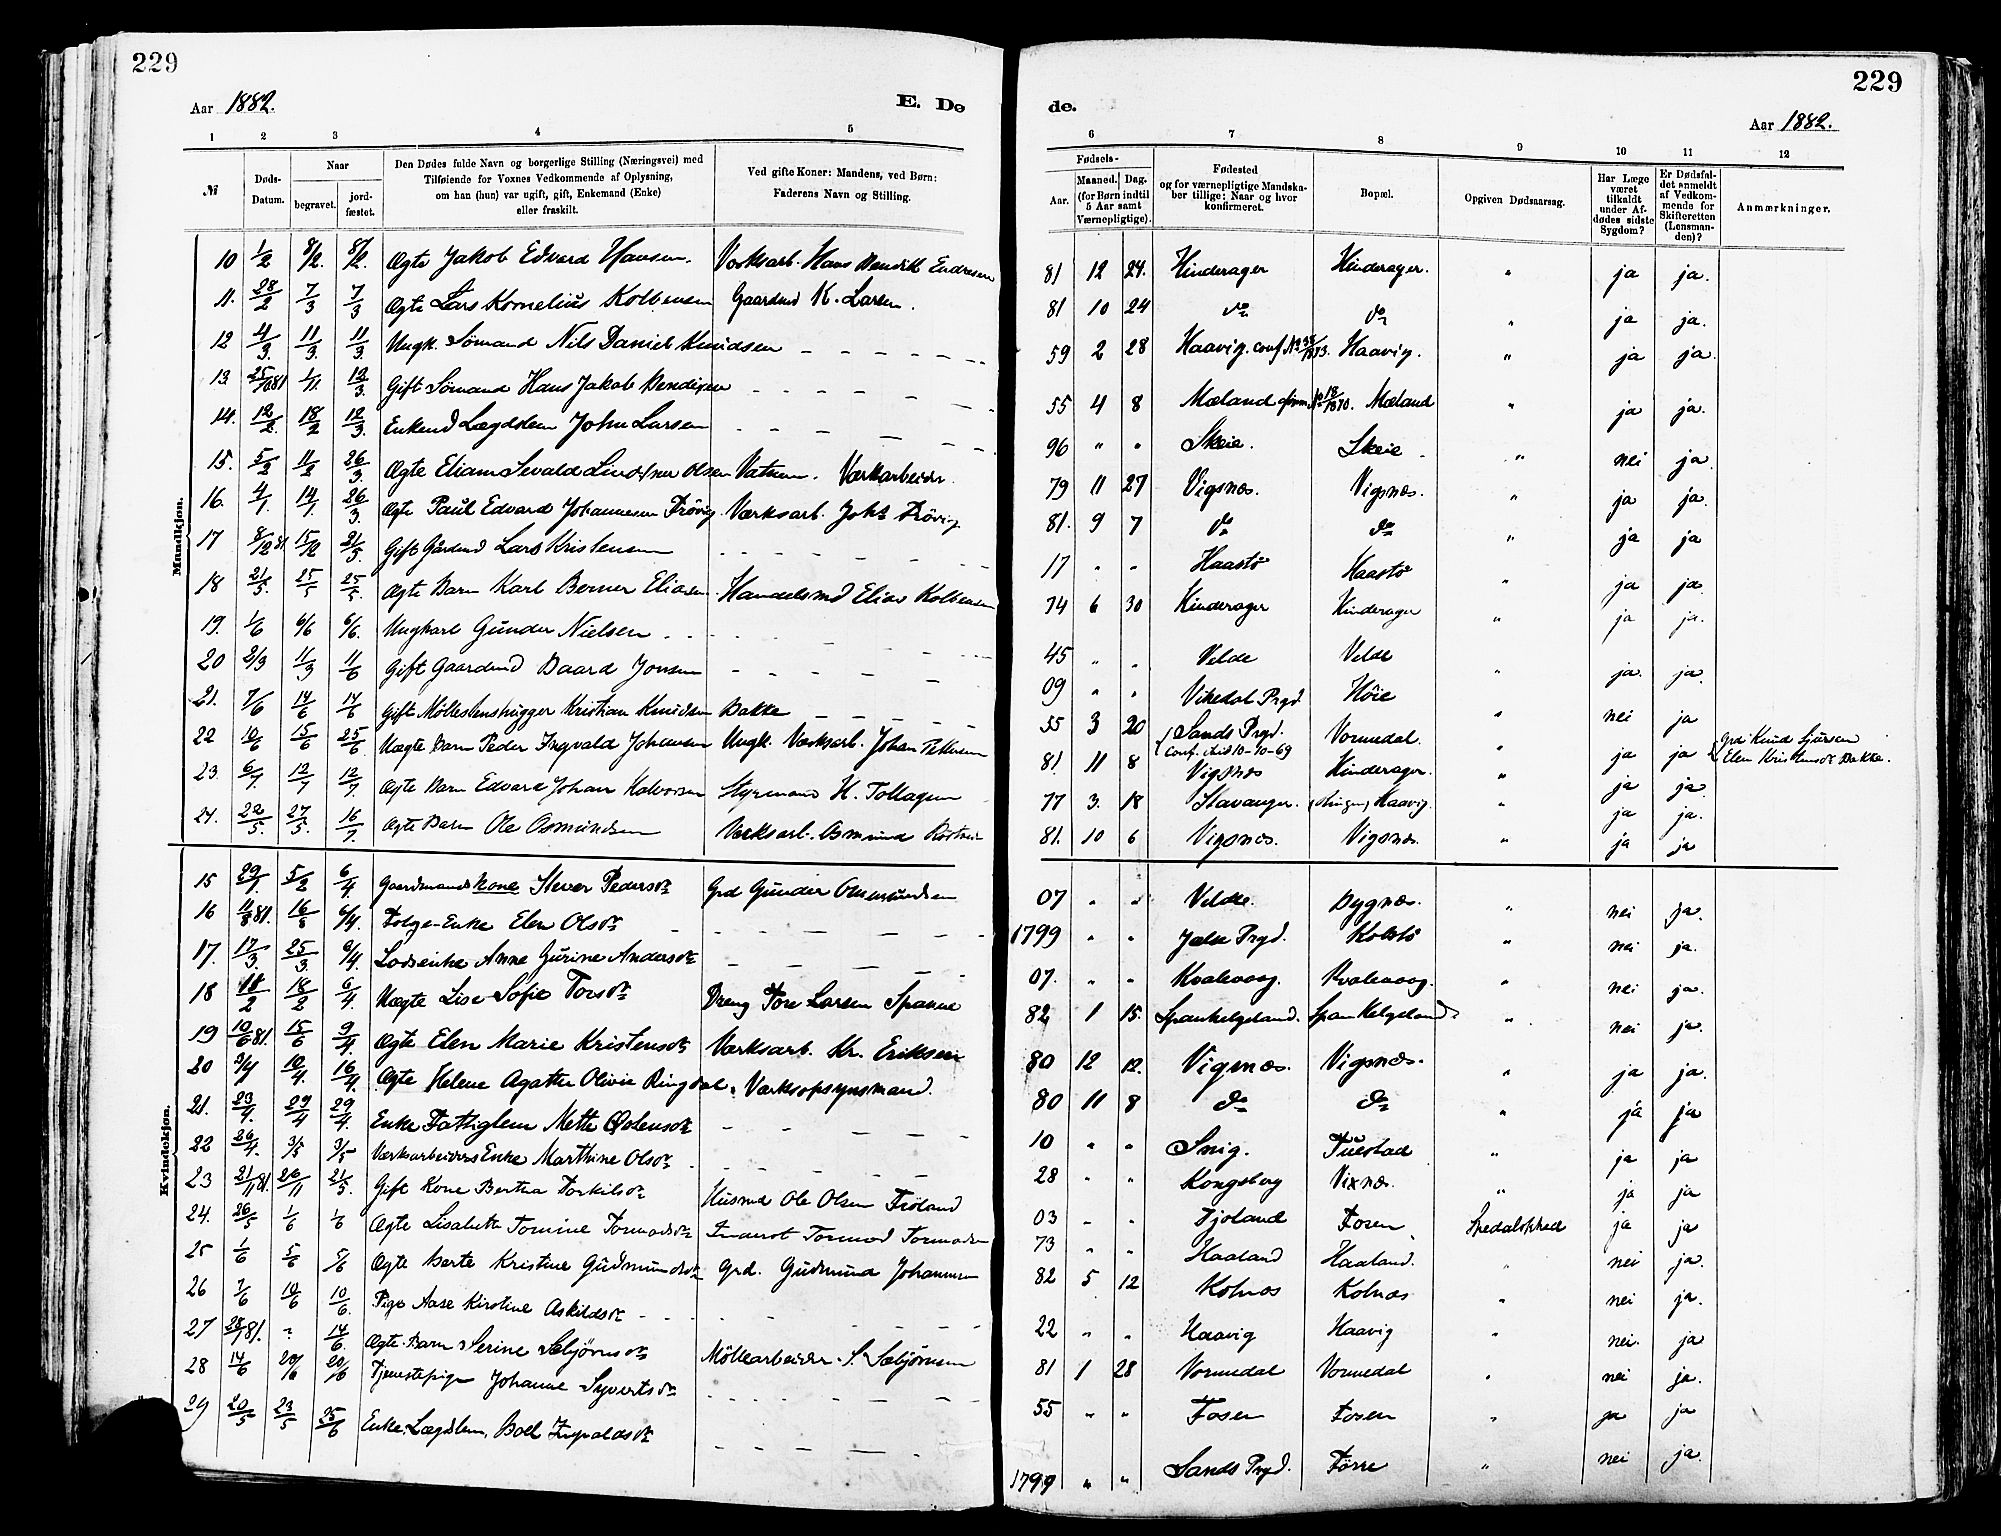 229
229
Aar 1882.
E. Dø
de.
Aar 1882.
1 2 3 4 5 6 7 8 9 10 11 12
№
Døds-Datum.
Naar
begravet.
jord-fæstet.
Den Dødes fulde Navn og borgerlige Stilling (Næringsvei) med
Tilføiende for Voxnes Vedkommende af Oplysning,
om han (hun) var ugift, gift, Enkemand (Enke)
eller fraskilt.
Ved gifte Koner: Mandens, ved Børn:
Faderens Navn og Stilling.
Fødsels-
Aar.
Maaned. Dag.
(for Børn indtil
5 Aar samt
Værnepligtige).
Fødested
og for værnepligtige Mandska-
ber tillige: Naar og hvor
konfirmeret.
Bopæl.
Opgiven Dødsaarsag.
Har Læge
været
tilkaldt
under Af-
dødes sidste
Sygdom?
Er Dødsfal-
det anmeldt
af Vedkom-
mende for
Skifteretten
(Lensman-
den)?
Anmærkninger.
Mandkjøn.
10 1/2 8/2. 8/2. Ægte Jakob Edvard Hansen. Værksarb. Hans Bendik Endresen 81 12 24. Hinderager Hinderager. " ja ja.
11. 28/2 7/3 7/3 Ægte Lars Kornelius Kolbensen Gaardmd K. Larsen. 81 10 24 do do " ja ja.
12 4/3. 11/3. 11/3. Ungk. Sømand Nils Daniel Knudsen 59 2 28 Haavig. conf. Haavig. " ja ja.
13 25/10 81 1/11. 12/3. Gift Sømand Hans Jakob Bendixen 55 4 8 Mæland Mæland " ja ja.
14. 12/2. 18/2 12/3. Enkemd Lægdslem John Larsen 96 " " Skeie. Skeie. " nei ja.
15. 5/2 11/2 26/3. Ægte Eliam Sevald Olsen Vatnem. Værkarbeider. 79 11 27 Vigsnæs. Vigsnæs. " ja ja.
16. 4/1. 14/1. 26/3. Ægte Paul Edvard Johannesen Frövig Værksarb. Johs Frövig 81. 9 7 do do " ja ja
17 8/12 81. 15/12 21/5. Gift Gårdmd Lars Kristensen 17 " " Haastø Haastø " ja ja.
18 21/5. 25/5 25/5. Ægte Barn Karl Berner Eliasen. Handelsmd Elias Kolbensen 74 6 30 Hinderager Hinderager " ja ja.
19. 1/6 6/6 6/6. Ungkarl Gunder Nielsen 45 " " Velde Velde " ja ja.
20 2/3 11/3 11/6 Gift Gaardmd Baard Jonsen 09 " " Vikedal Prgd Höie " nei ja
21. 7/6 14/6 14/6 Gift Möllestenshugger Kristian Knudsen Bakke 55 3 20 Sands Prgd. Conf. 10-10-69 Vormedal. " ja ja Grd. Knud Sjursen Elen Kristensdr Bakke.
22 10/6 15/6 25/6 Uægte Barn Peder Ingvald Johansen Ungk. Værksarb. Johan Pettersen 81. 11 8 Vigsnæs Hinderager. " ja ja
23. 6/7. 12/7 12/7. Ægte Barn Edvard Johan Halvorsen Styrmand H. Tollagsen 77 3. 18 Stavanger. Haavig. " ja ja.
24. 22/5. 27/5. 16/7. Ægte Barn Ole Osmundsen Værksarb. Osmund 81. 10 6 Vigsnæs. Vigsnæs. " ja ja
Kvindekjøn.
15 29/1. 5/2 6/4. Gaardmandskone Pedersdr Grd Gunder Omundsen 07 " " Velde. Bygnæs. " nei ja.
16 11/8 81. 16/8 6/4. Folge-Enke Elen Olsdr 1799 " " Jælse Prgd. Kolstø " nei ja.
17. 17/3 25/3 6/4. Lodsenke Anne Gurine Andersdr 07. " " Kvalevaag. Kvalevaag. " nei ja.
18 11/2 18/2 6/4. Uægte Lise Sofie Torsdr Dreng Tore Larsen Spanne 82 1 15. Spankelgeland. Spankelgeland. " nei ja.
19 10/6 81. 15/6 9/4. Ægte Elen Marie Kristensdr Værksarb. Kr. Eriksen 80 12 12. Vigsnæs. Vigsnæs. " ja ja.
20 2/4 10/4. 16/4. Ægte Helene Agathe Olivie Ringdal. Værksopsynsmand. 80 11 8 do do " ja ja
21. 23/4. 29/4 29/4. Enke Fattiglem Mette Østensdr 10 " " Snig. Tuestad " ja ja
22 26/4. 3/5 3/5 Værksarbeiders Enke Marthine Olsdr. 28 " " Kongsberg Vixnæs. " ja ja
23 21/11 81. 26/11 21/5. Gift Kone Bertha Torkilsdr Husmd Ole Olsen Fröland 03 " " Fjoland Fosen Spedalskhed ja ja
24. 26/5 1/6 1/6 Ægte Lisabeth Tomine Tormodsdr Inderst Tormod Tormodsen 73 " " Haaland Haaland. " nei ja.
25 1/6 5/6 5/6 Ægte Berte Kristine Gudmundsdr Grd. Gudmund Johannesen 82 5 12 Kolnæs Kolnæs " nei ja.
26 7/6 10/6 10/6. Pige Aase Kirstine Askildsdr 22 " " Haavig Haavig " nei. ja
27 28/1 81. " 14/6. Ægte Barn Serine Sæbjørnsdr Möllearbeider S. Sæbjørnsen 81 1 28 Vormedal Vormedal " nei ja.
28 14/6 20/6 20/6 Tjenestepige Johanne Syvertsdr 55 " " Fosen Fosen " ja ja
29 20/5 23/5 25/6 Enke. Lægdslem, Boel Ingvaldsdr 1799 " " Sands Prgd. Førre " nei ja.